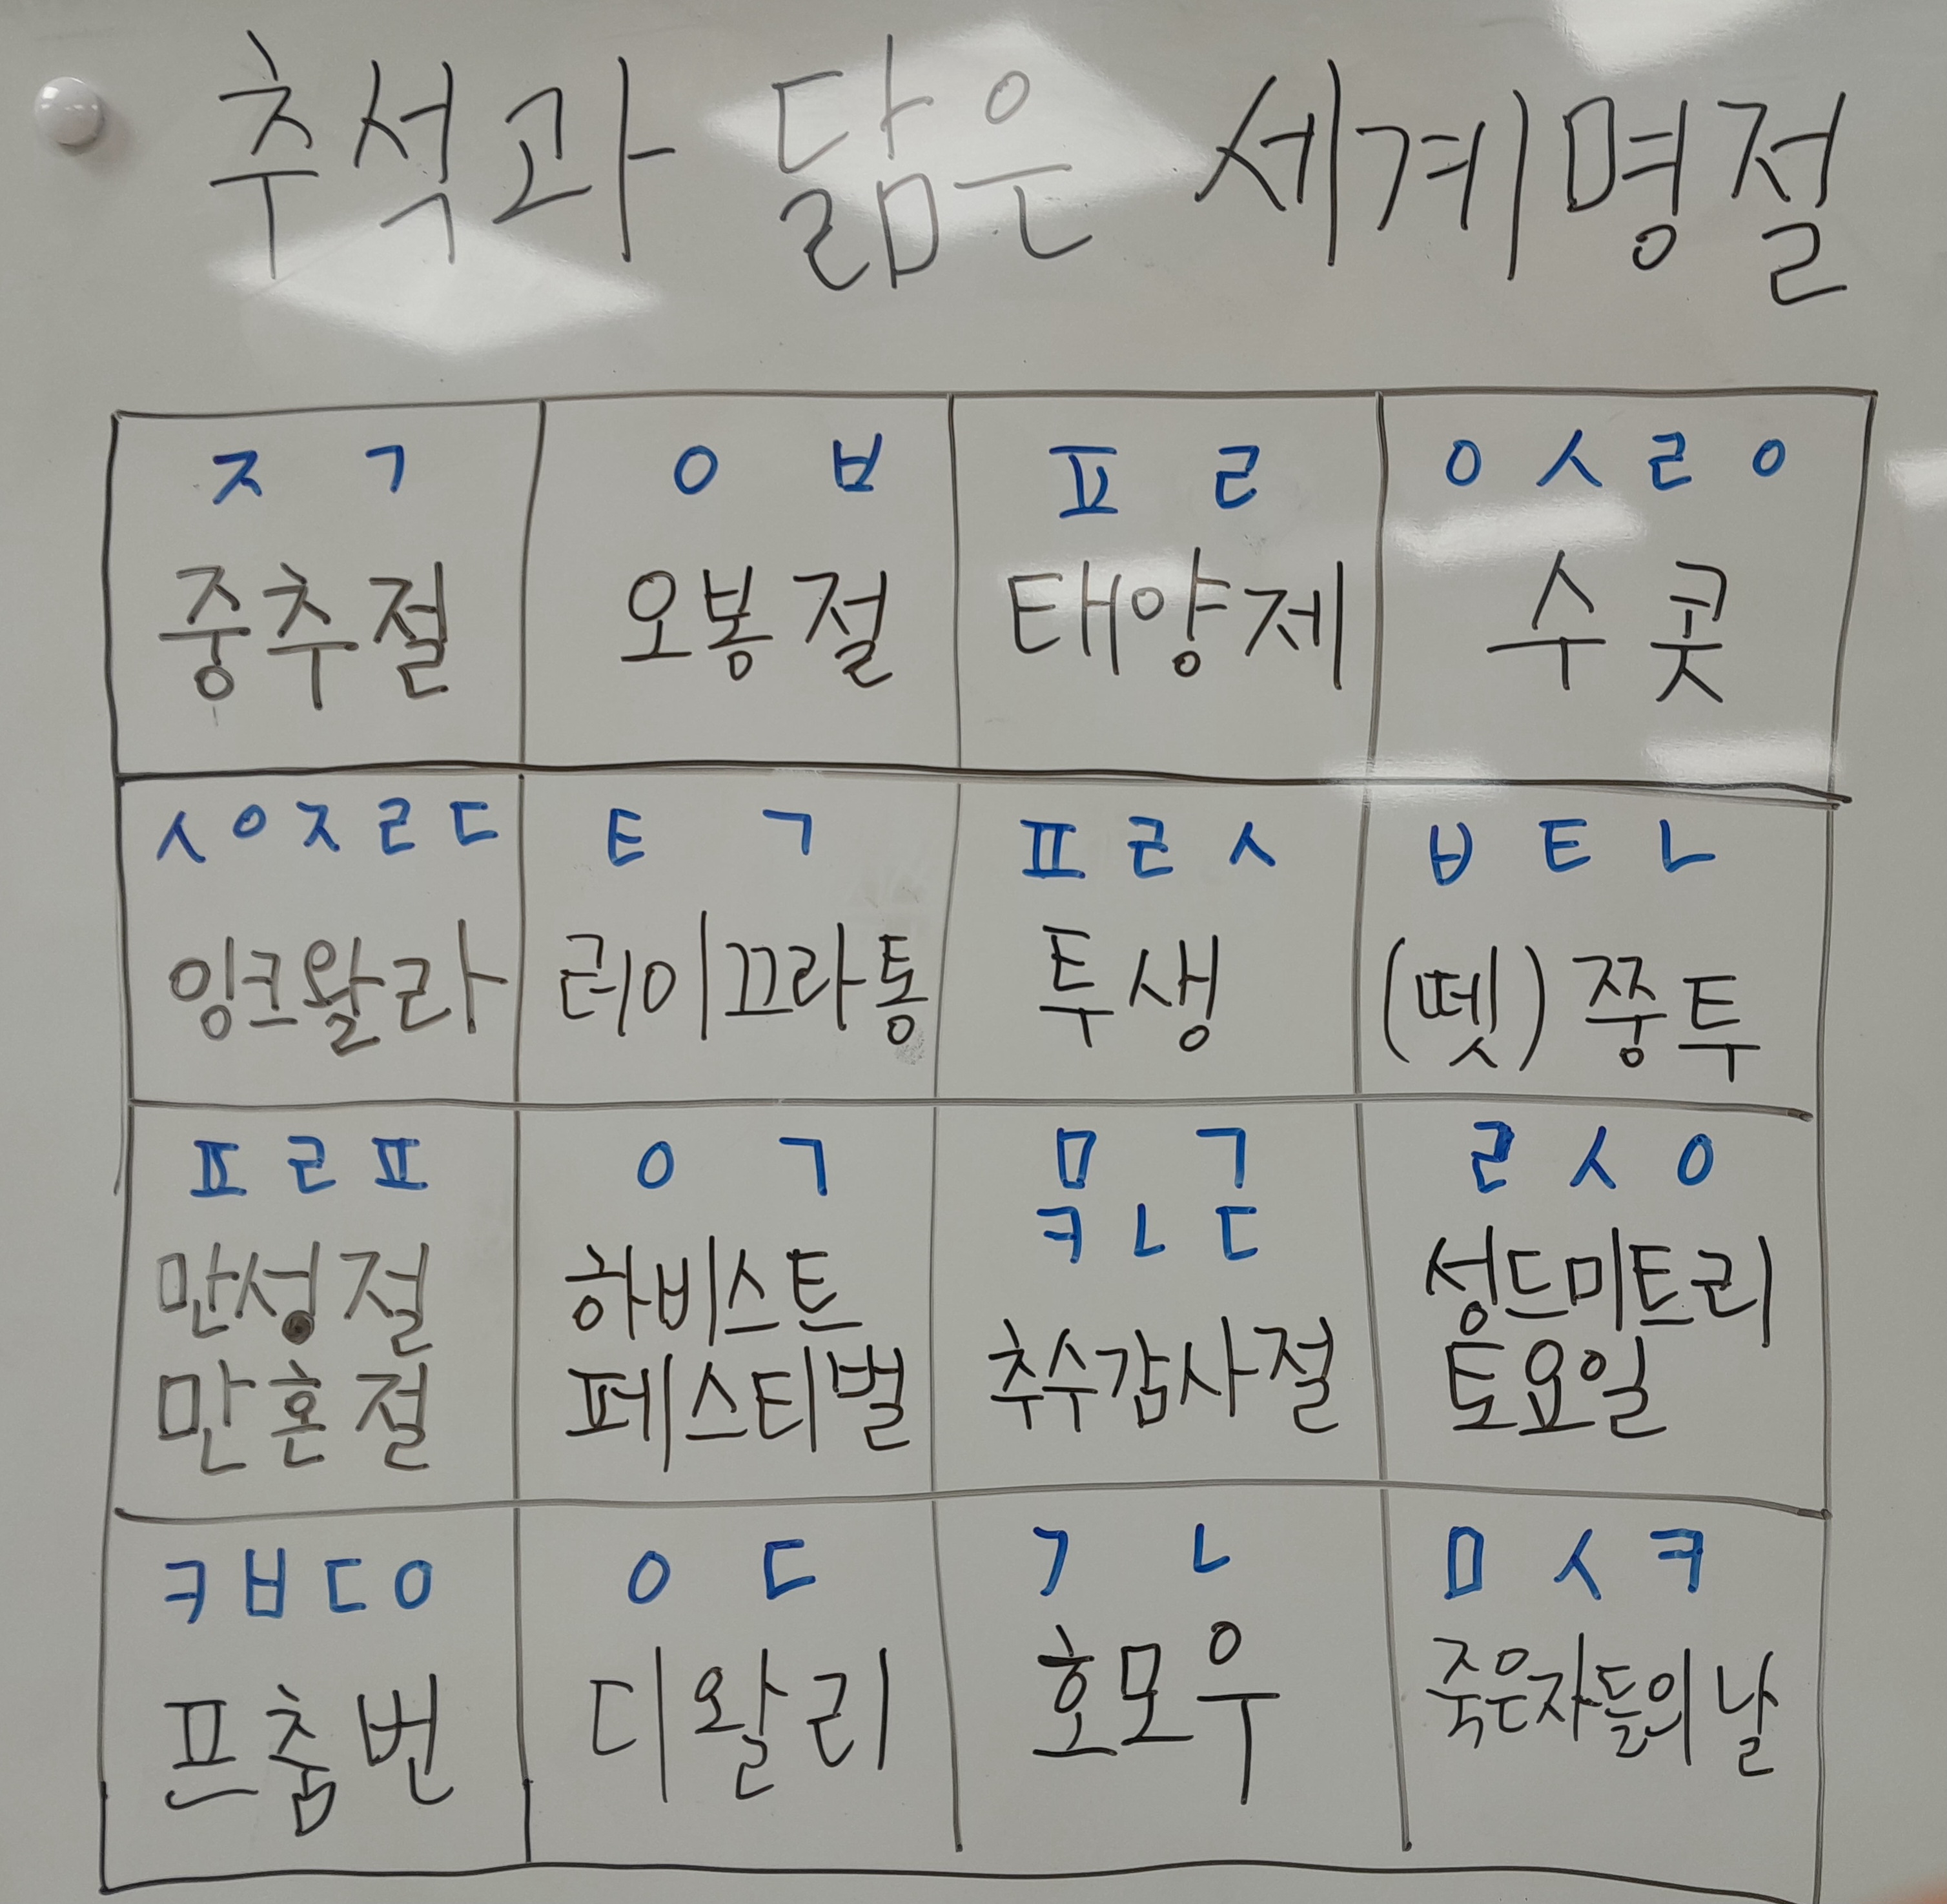 추석과 닮은 세계명절
ㅈ ㄱ
중추절
ㅇ ㅂ
오봉절
ㅍ ㄹ
태양제
ㅇ ㅅ ㄹ ㅇ
수콧
ㅅ ㅇ ㅈ ㄹ ㄷ
잉크왈라
ㅌ ㄱ
러이끄라통
ㅍ ㄹ ㅅ
투생
ㅂ ㅌ ㄴ
(뗏) 쭝투
ㅍ ㄹ ㅍ
만성절
만혼절
ㅇ ㄱ
하비스트
페스티벌
ㅁ ㄱ
ㅋ ㄴ ㄷ
추수감사절
ㄹ ㅅ ㅇ
성드미트리
토요일
ㅋ ㅂ ㄷ ㅇ
프춤번
ㅇ ㄷ
디왈리
ㄱ ㄴ
호모우
ㅁ ㅅ ㅋ
죽은자들의 날